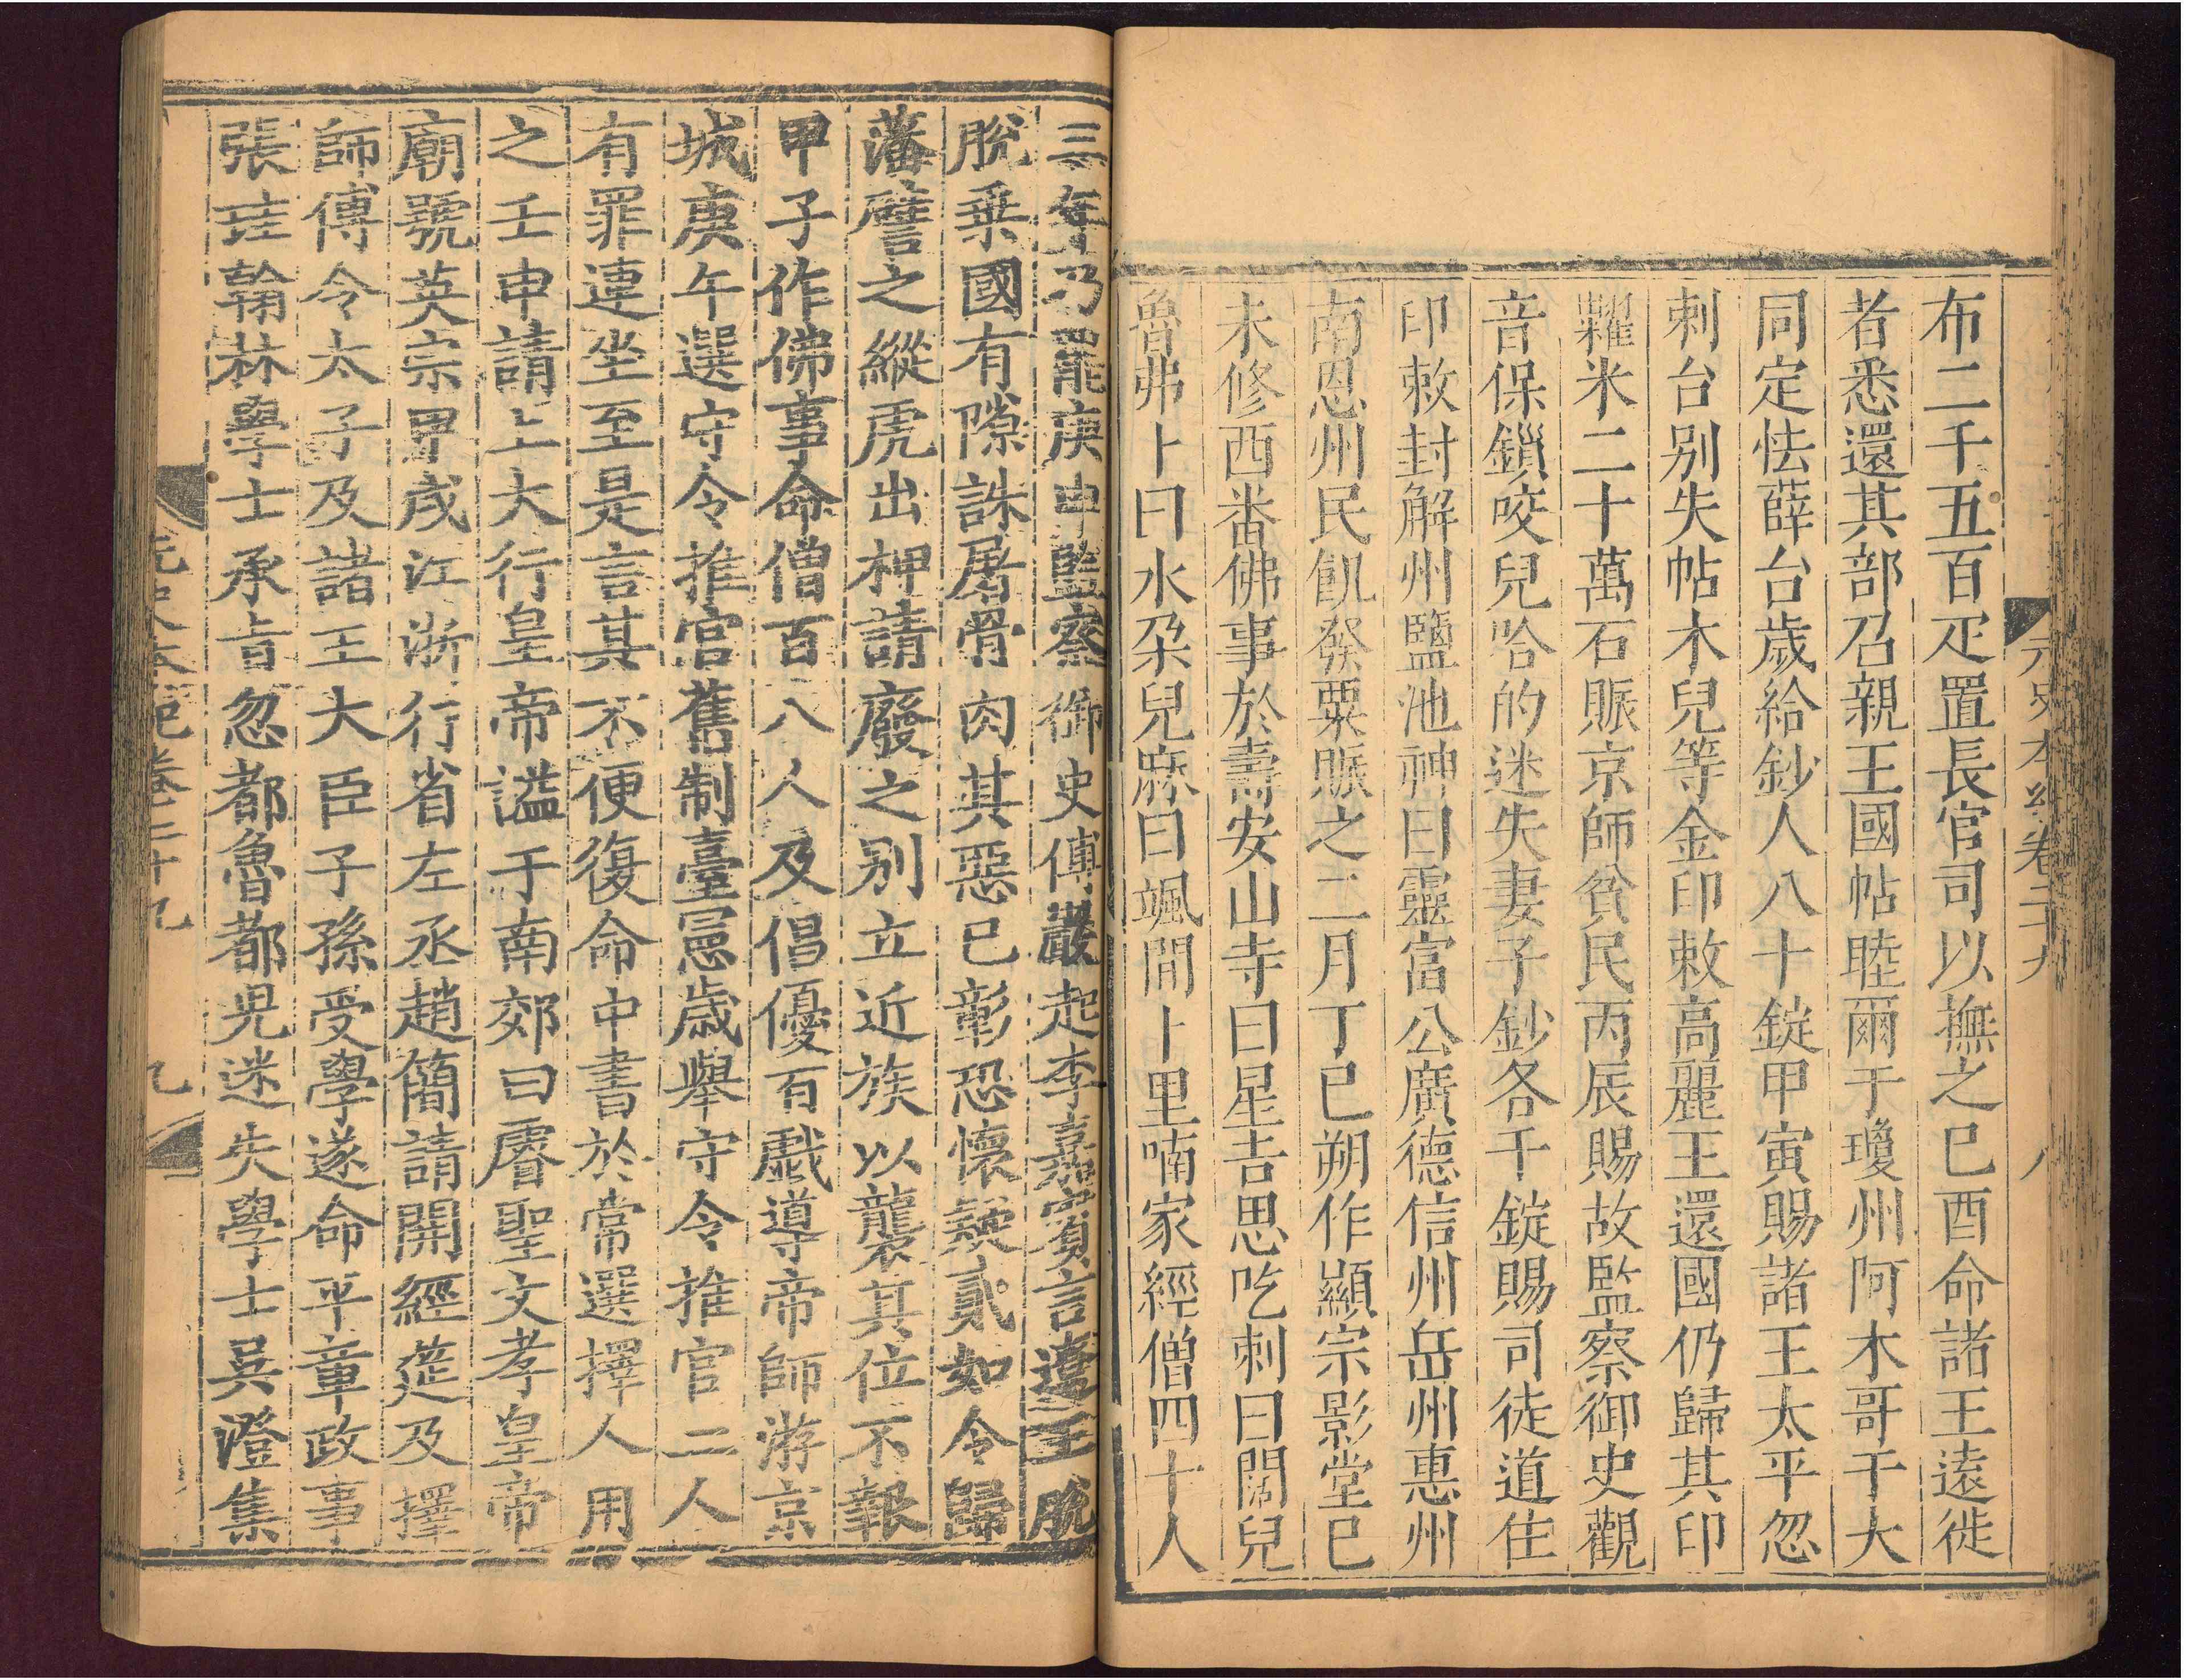 元史本紀卷二十九 八
布二千五百疋置長官司以撫之已酉命諸王遠徙
者悉還其部召親王國帖睦爾于瓊州阿木哥于大
同定怯薛台歲給鈔人八十錠甲寅賜諸王太平忽
剌台别失帖木兒等金印敕高麗王還國仍歸其印
糶米二十萬石賑京師貧民丙辰賜故監察御史觀
音保鎖咬兒哈的迷失妻子鈔各千錠賜司徒道住
印敕封解州鹽池神曰靈富公廣德信州岳州惠州
南恩州民飢發粟賑之二月丁巳朔作顯宗影堂己
未修西番佛事於壽安山寺曰星吉思吃剌曰闊兒
魯弗卜曰水朶兒麻曰颯間卜里喃家經僧四十人
三年乃罷庚申監察御史傅巖起李嘉賓言遼王脫
脫乗國有隙誅屠骨肉其惡已彰恐懷疑貳如令歸
藩譬之縱虎出柙請廢之别立近族以襲其位不報
甲子作佛事命僧百八人及倡優百戲導帝師游京
城庚午選守令推官舊制臺憲歲舉守令推官二人
有罪連坐至是言其不便復命中書於常選擇人用
之壬申請上大行皇帝謚于南郊曰睿聖文孝皇帝
廟號英宗甲戌江浙行省左丞趙簡請開經筵及擇
師傅令太子及諸王大臣子孫受學遂命平章政事
張珪翰林學士承旨忽都魯都兒迷失學士吳澄集
元史本紀卷二十九 九